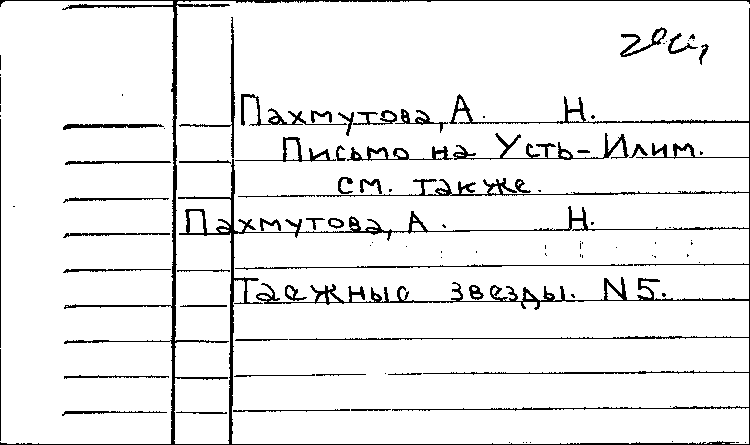 Пахмутова, А. Н.
Письмо на Усть-Илим.
см. также.
Пахмутова, А. Н.
Таежные звезды. N 5.